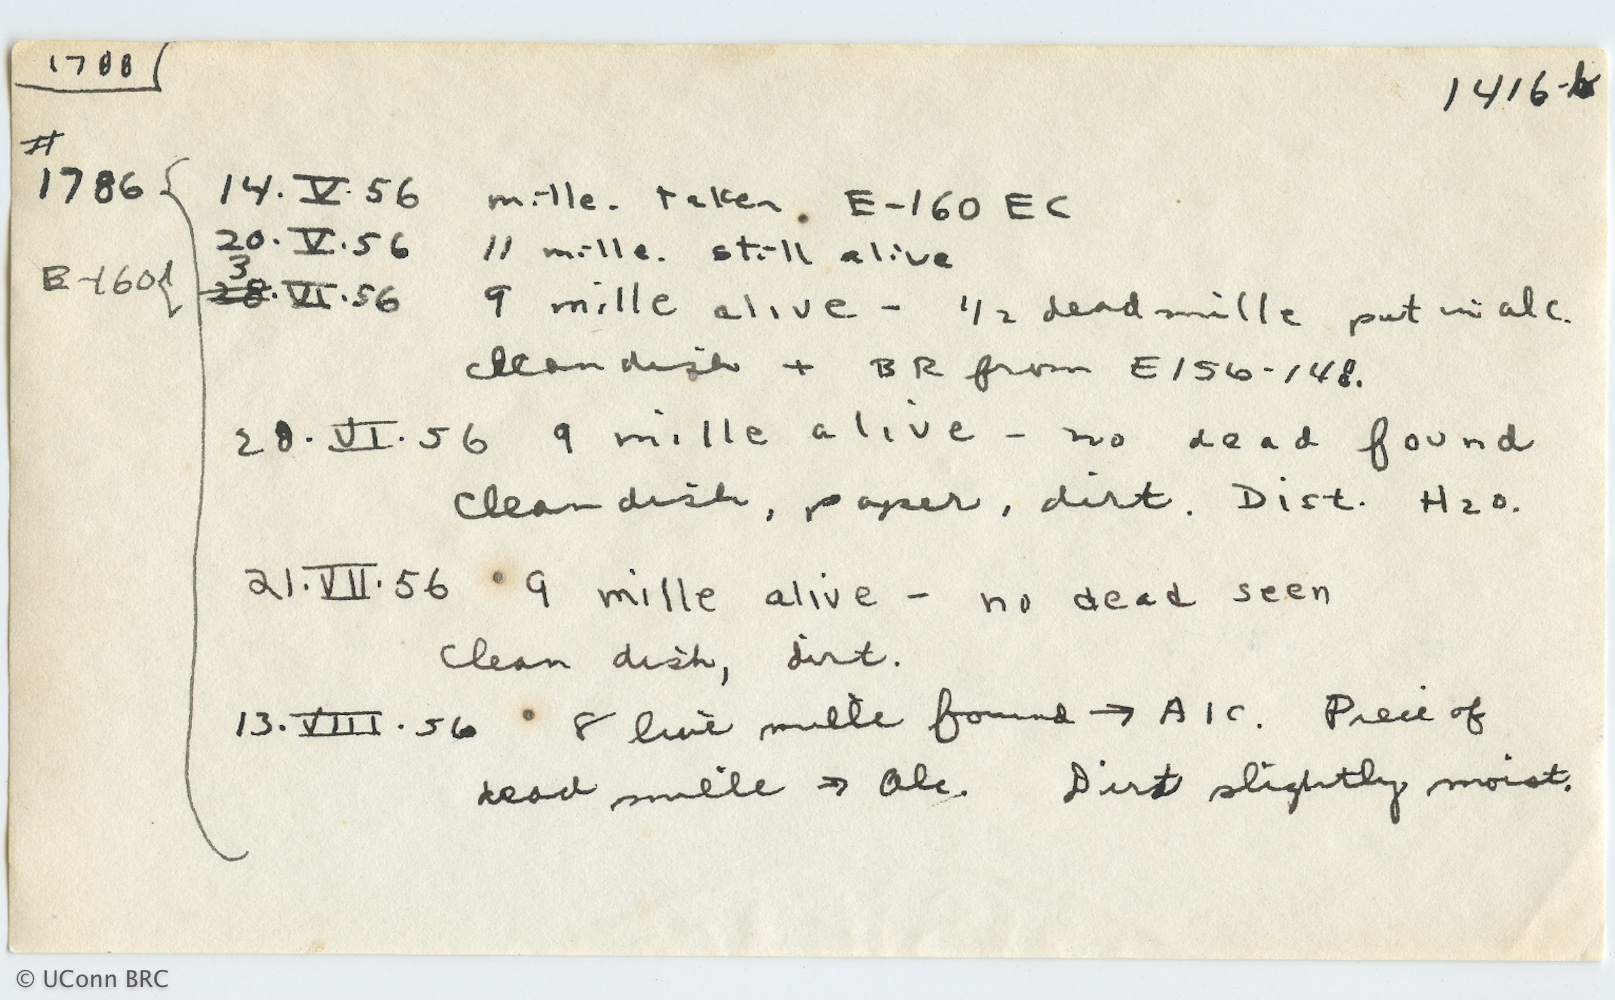 1788
1416-b
#
1786 14.V.56 mille. taken. E-160 EC
20.V.56 11 mille. still alive
E-160 3
28.VI.56 9 mille alive - 1/2 dead mille put in alc.
Clean dish + BR from E156-148.
28.VI.56 9 mille alive - no dead found
Clean dish, paper, dirt. Dist. H2O.
21.VII.56 9 mille alive - no dead seen
Clean dish, dirt.
13.VIII.56 8 live mille found → Alc. Piece of
dead mille → Alc. Dirt slightly moist.
© UConn BRC